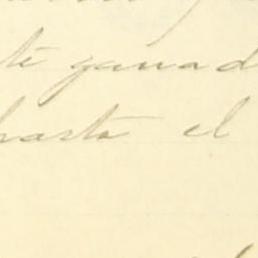 te ganad
hasta el